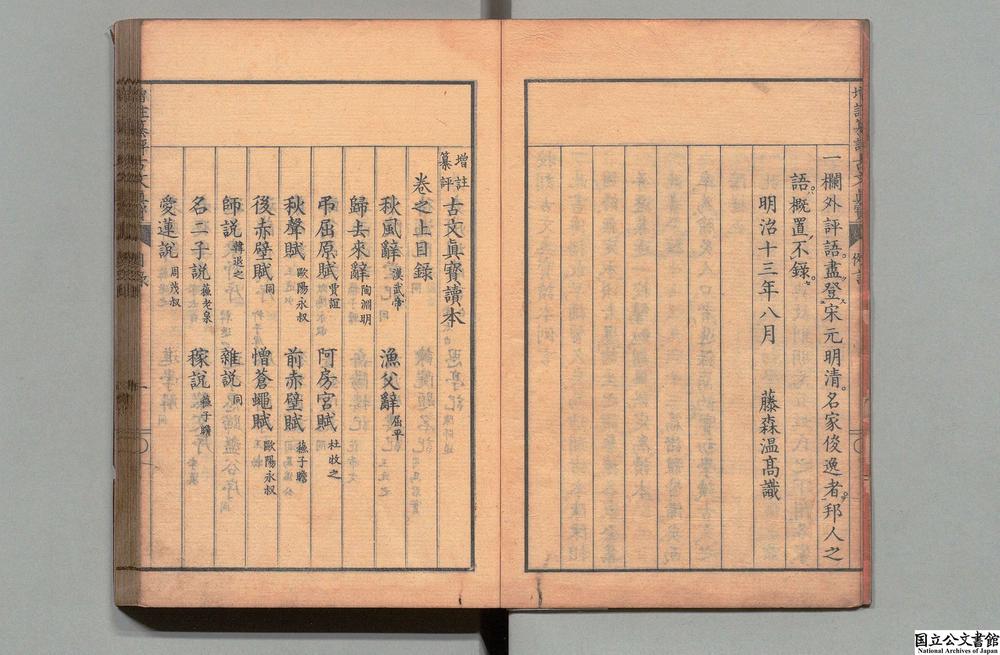 一欄外評語盡登宋元明清名家俊逸者邦人之
語概置不錄
明治十三年八月 藤森温髙識
增註纂評古文眞寶讀本
卷之上目録
秋風辭 漢武帝 漁父辭 屈平
歸去來辭 陶淵明
弔屈原賦 賈誼 阿房宮賦 杜牧之
秋聲賦 歐陽永叔 前赤壁賦 蘇子瞻
後赤壁賦 同 憎蒼蠅賦 歐陽永叔
師說 韓退之 雜說 同
名二子說 蘇老泉 稼說 蘇子瞻
愛蓮說 周茂叔
国立公文書館
National Archives of Japan